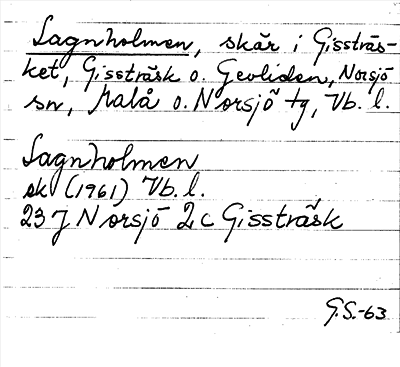 Lagnholmen, skär i Gissträs-
ket, Gissträsk o. Gevliden, Norsjö
sn, Malå o. Norsjö tg, Vb. l.
Lagnholmen
sk (1961) Vb. l.
23 J Norsjö 2 c Gissträsk
G.S.-63